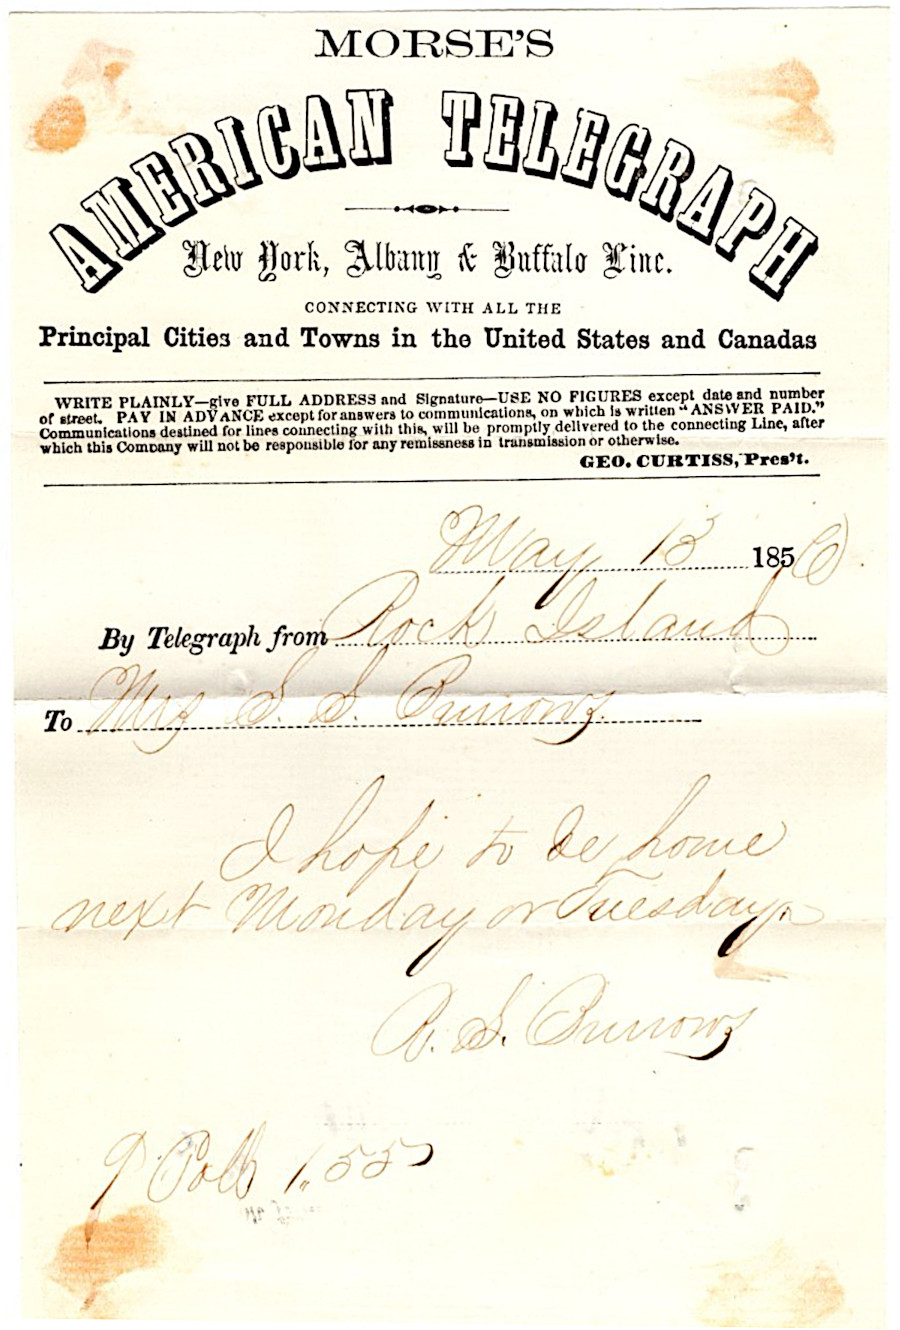 MORSE'S
AMERICAN TELEGRAPH
New York, Albany & Buffalo Line.
CONNECTING WITH ALL THE
Principal Cities and Towns in the United States and Canadas
WRITE PLAINLY—give FULL ADDRESS and Signature—USE NO FIGURES except date and number
of street. PAY IN ADVANCE except for answers to communications, on which is written "ANSWER PAID."
Communications destined for lines connecting with this, will be promptly delivered to the connecting Line, after
which this Company will not be responsible for any remissness in transmission or otherwise.
GEO. CURTISS, Pres't.
May 13 1856
By Telegraph from Rock Island
To Mrs S. S. Burrows.
I hope to be home
next Monday or Tuesday
R. S. Burrows
9 Coll 1.55